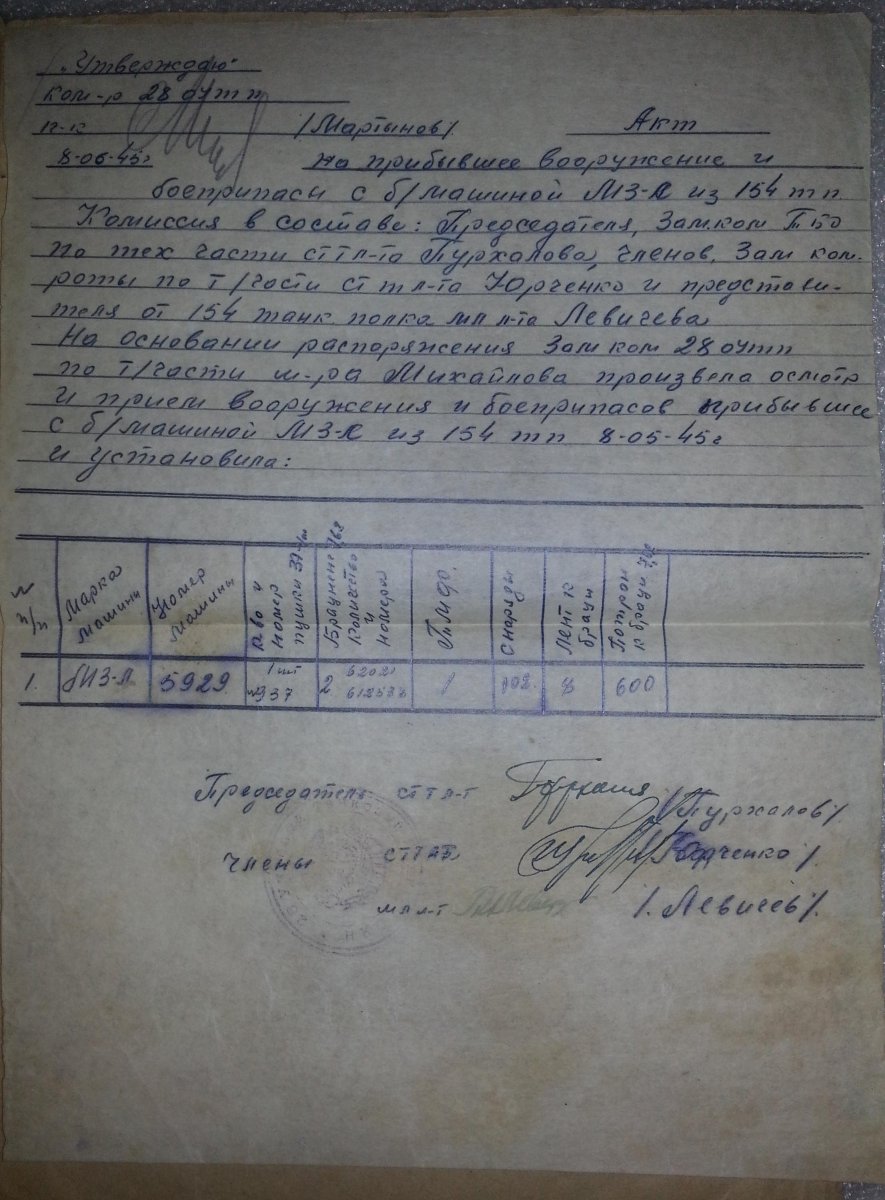 "Утверждаю"
ком-р 28 оутп
п-к /Мартынов/. Акт
8-05-45г на прибывшее вооружение и
боеприпасы с б/машиной М3-Л из 154 тп
Комиссия в составе: Председателя, Зам.ком ТБ
по тех части ст тл-та Пурхалова, членов, Зам ком.
роты по т/части ст тл-та Юрченко и представи-
теля от 154 танк. полка мл л-та Левичева
На основании распоряжения Зам ком 28 оутп
по т/части м-ра Михайлова произвела осмотр
и прием вооружения и боеприпасов прибывшее
с б/машиной М3-Л из 154 тп 8-05-45г
и установила:
№ п/п
Марка машины
Номер машины
к-во и номер пушки 37 м/м
Браунинг 7,62 Количество и номера
Снаряды
Лент к браун
Патрон к браун 7,62
1. М3-Л 5929 1 шт №937 2 62021 1 102 8 600
Председатель ст тл-т /Пурхалов/.
Члены ст тл-т /Юрченко/.
мл л-т /.Левичев/.